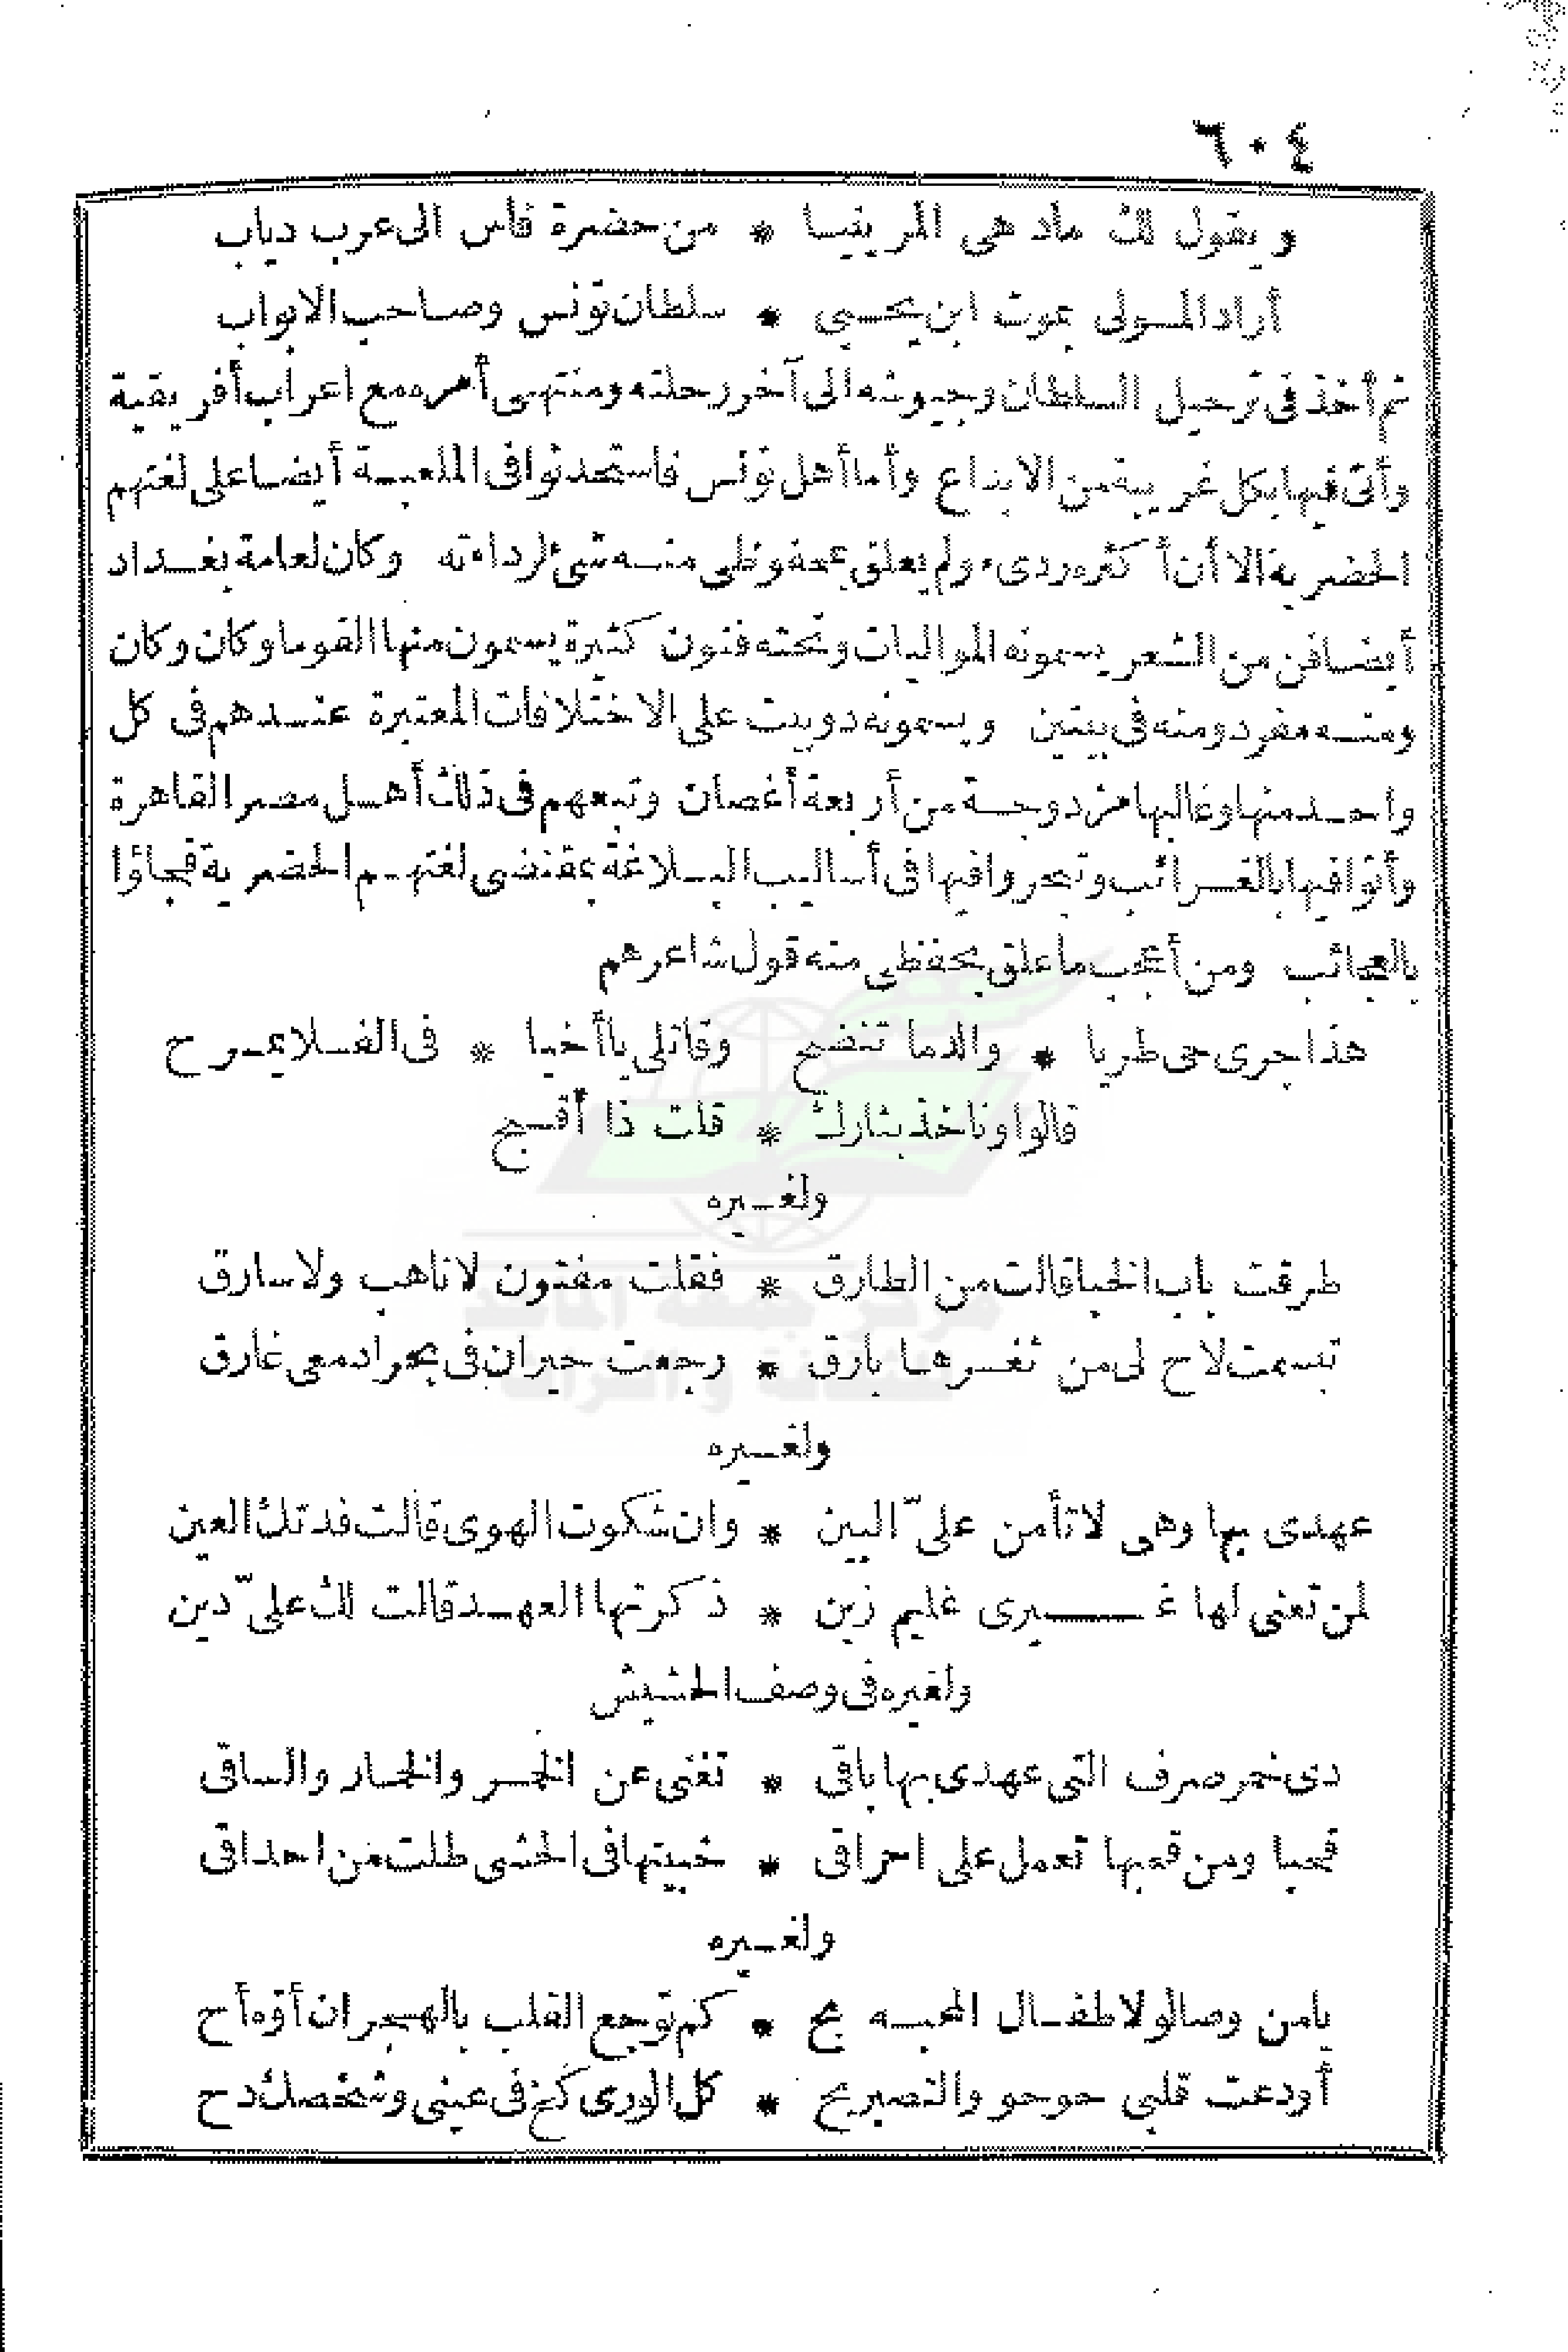 ٦٠٤
ويقول لك مادهى المرينيا * من حضرة فاس الى عرب دياب
أراد المولى بموت ابن يحيى * سلطان تونس وصاحب الابواب
ثم أخذ فى ترحيل السلطان وجيوشه الى آخر رحلته ومنتهى أمره مع اعراب أفريقية
وأتى فيها بكل غريبة من الابداع وأما أهل تونس فاستحدثوا فى الملعبة أيضا على لغتهم
الحضرية الا أن أكثره ردىء ولم يعلق بمحفوظى منه شئ لرداءته وكان لعامة بغداد
أيضا فن من الشعر يسمونه المواليات وتحته فنون كثيرة يسمون منها القوما وكان وكان
ومنه مفرد ومنه فى بيتين ويسمونه دوبيت على الاختلافات المعتبرة عندهم فى كل
واحد منها وغالبها مزدوجة من أربعة أغصان وتبعهم فى ذلك أهل مصر القاهرة
وأتوا فيها بالغرائب وتبحروا فيها فى أساليب البلاغة بمقتضى لغتهم الحضرية فجاؤا
بالعجائب ومن أعجب ما علق بحفظى منه قول شاعرهم
هذا جرى حى طريا * والدما تنضح وقاتلى يا أخيا * فى الفلا يمرح
قالوا وناخذ بثارك * قلت ذا أقبح
ولغيره
طرقت باب الخبا قالت من الطارق * فقلت مفتون لا ناهب ولا سارق
تبسمت لاح لى من ثغرها بارق * رجعت حيران فى بحر ادمعى غارق
ولغيره
عهدى بها وهى لا تأمن علىّ البين * وان شكوت الهوى قالت فدتك العين
لمن تعنى لها غيرى غليم زين * ذكرتها العهد قالت لك علىّ دين
ولغيره فى وصف الحشيش
دى خمر صرف التى عهدى بها باقى * تغنى عن الخمر والخمار والساقى
قحبا ومن قحبها تعمل على احراقى * خبيتها فى الحشى طلت من احداقى
ولغيره
يا من وصالو لاطفال المحبه بح * كم توجع القلب بالهجران أوّه أح
أودعت قلبى حوحو والتصبر بح * كل الورى كخ فى عينى وشخصك دح
مركز جمعة الماجد
للثقافة والتراث